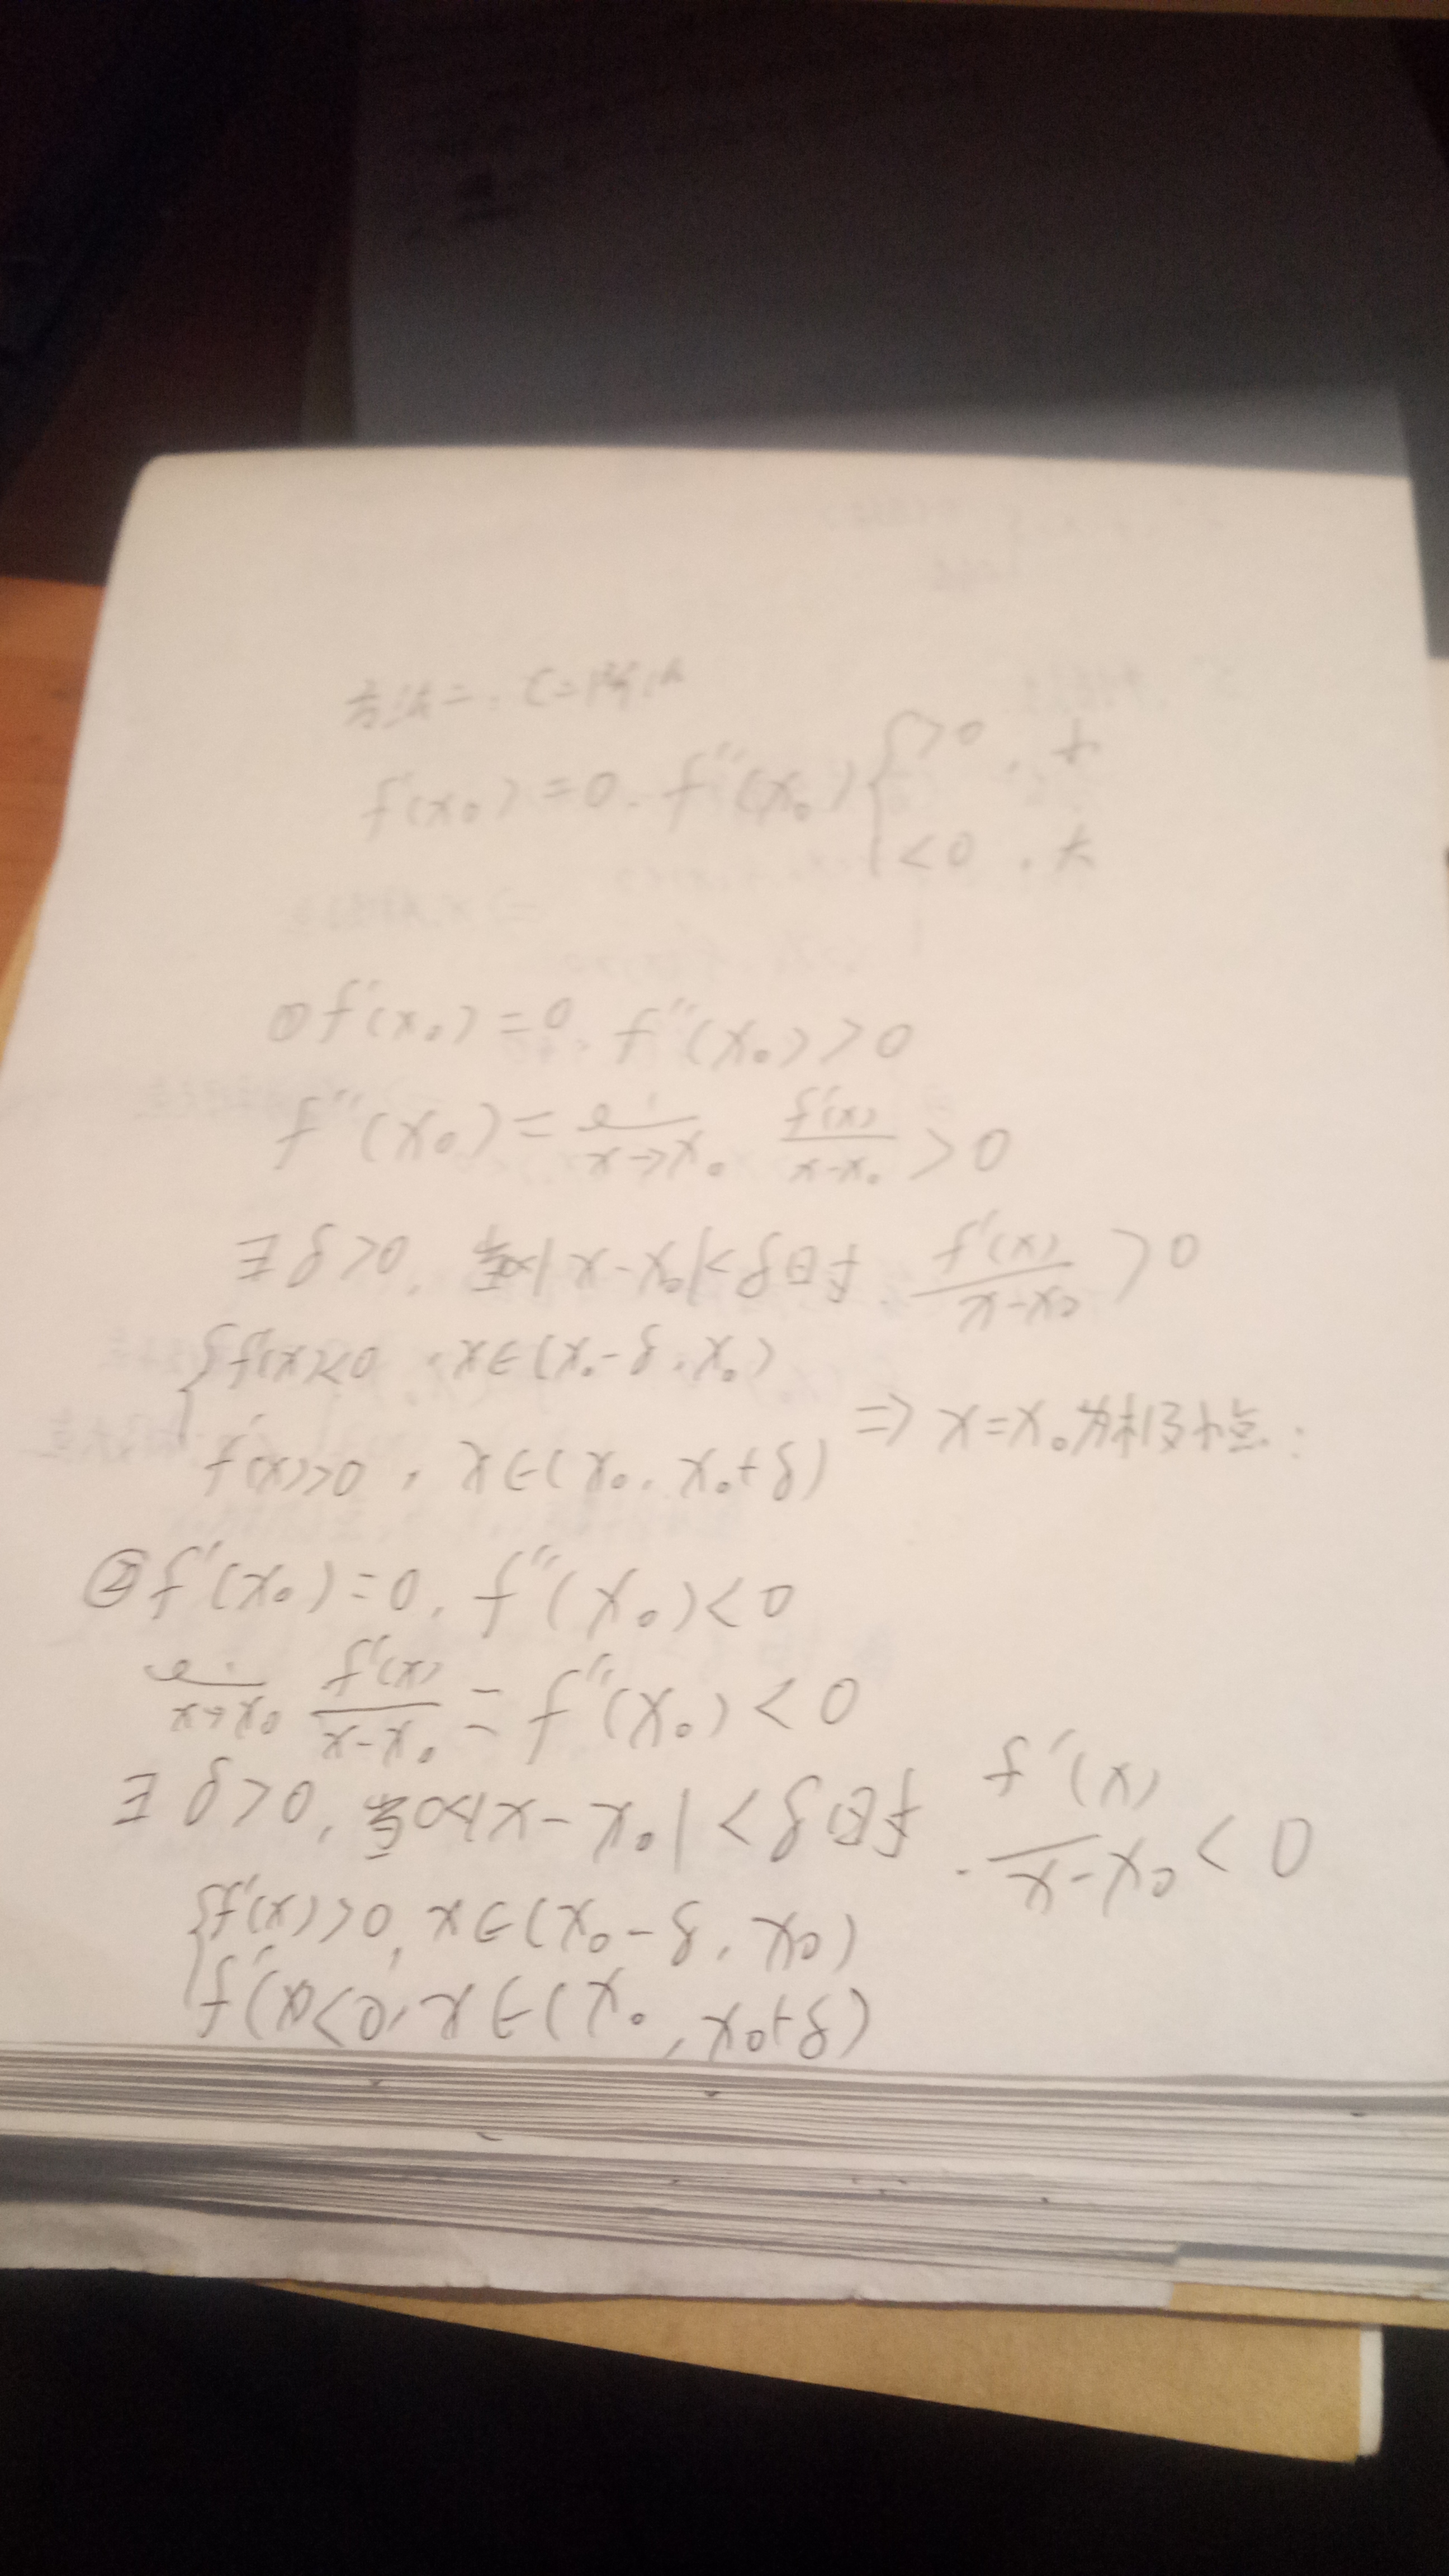 方法二.(二阶法)
f'(x₀)=0. f''(x₀){>0, 小
<0, 大
① f'(x₀)=0, f''(x₀)>0
f''(x₀)=lim x→x₀ f'(x)/(x-x₀) >0
∃δ>0, 当0<|x-x₀|<δ时, f'(x)/(x-x₀) >0
{f'(x)<0, x∈(x₀-δ, x₀)
f'(x)>0, x∈(x₀, x₀+δ) ⇒ x=x₀为极小点:
② f'(x₀)=0, f''(x₀)<0
lim x→x₀ f'(x)/(x-x₀) = f''(x₀)<0
∃δ>0, 当0<|x-x₀|<δ时, f'(x)/(x-x₀) <0
{f'(x)>0, x∈(x₀-δ, x₀)
f'(x)<0, x∈(x₀, x₀+δ)